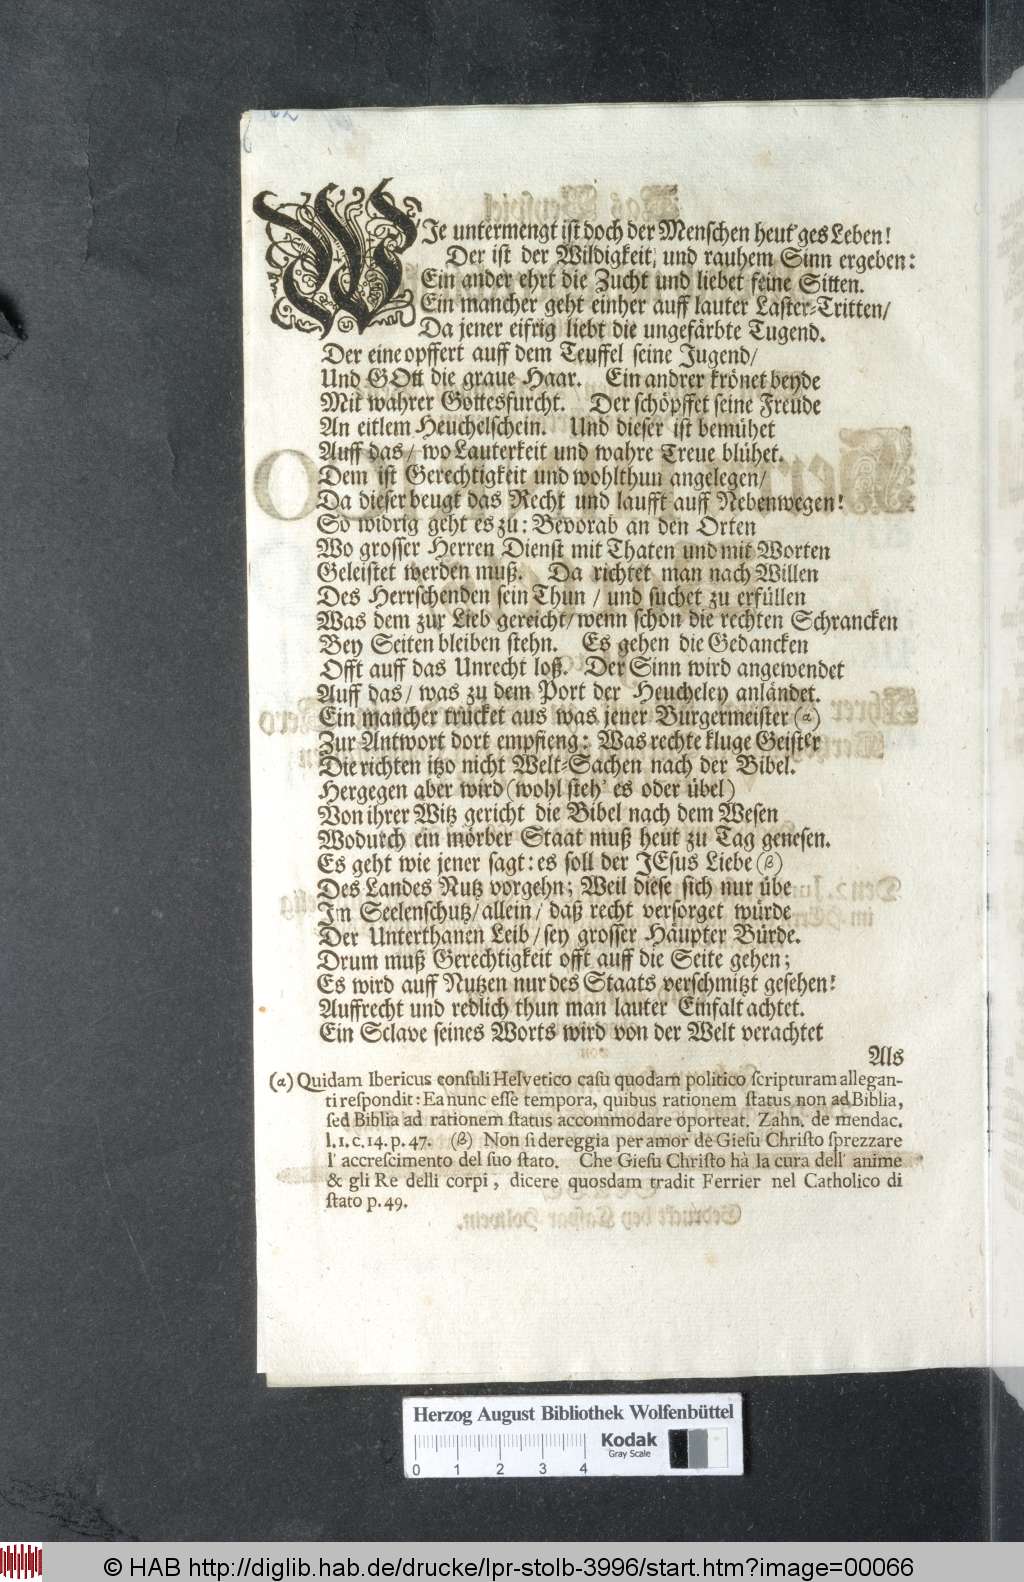 WJe untermengt ist doch der Menschen heut'ges Leben!
Der ist der Wildigkeit, und rauhem Sinn ergeben:
Ein ander ehrt die Zucht und liebet feine Sitten.
Ein mancher geht einher auff lauter Laster-Tritten/
Da jener eifrig liebt die ungefärbte Tugend.
Der eine opffert auff dem Teuffel seine Jugend/
Und GOtt die graue Haar. Ein andrer krönet beyde
Mit wahrer Gottesfurcht. Der schöpffet seine Freude
An eitlem Heuchelschein. Und dieser ist bemühet
Auff das/ wo Lauterkeit und wahre Treue blühet.
Dem ist Gerechtigkeit und wohlthun angelegen/
Da dieser beugt das Recht und laufft auff Nebenwegen!
So widrig geht es zu: Bevorab an den Orten
Wo grosser Herren Dienst mit Thaten und mit Worten
Geleistet werden muß. Da richtet man nach Willen
Des Herrschenden sein Thun / und suchet zu erfüllen
Was dem zur Lieb gereicht/ wenn schon die rechten Schrancken
Bey Seiten bleiben stehn. Es gehen die Gedancken
Offt auff das Unrecht loß. Der Sinn wird angewendet
Auff das/ was zu dem Port der Heucheley anländet.
Ein mancher trucket aus was jener Burgermeister (α)
Zur Antwort dort empfieng: Was rechte kluge Geister
Die richten itzo nicht Welt-Sachen nach der Bibel.
Hergegen aber wird (wohl steh' es oder übel)
Von ihrer Witz gericht die Bibel nach dem Wesen
Wodurch ein mörber Staat muß heut zu Tag genesen.
Es geht wie jener sagt: es soll der JEsus Liebe (β)
Des Landes Nutz vorgehn; Weil diese sich nur übe
Jn Seelenschutz/ allein/ daß recht versorget würde
Der Unterthanen Leib/ sey grosser Häupter Bürde.
Drum muß Gerechtigkeit offt auff die Seite gehen;
Es wird auff Nutzen nur des Staats verschmitzt gesehen!
Auffrecht und redlich thun man lauter Einfalt achtet.
Ein Sclave seines Worts wird von der Welt verachtet
Als
(α) Quidam Ibericus consuli Helvetico casu quodam politico scripturam allegan-
ti respondit: Ea nunc esse tempora, quibus rationem status non ad Biblia,
sed Biblia ad rationem status accommodare oporteat. Zahn. de mendac.
l. 1. c. 14. p. 47. (β) Non si dereggia per amor de Giesu Christo sprezzare
l' accrescimento del suo stato. Che Giesu Christo hà la cura dell' anime
& gli Re delli corpi, dicere quosdam tradit Ferrier nel Catholico di
stato p. 49.
Herzog August Bibliothek Wolfenbüttel
Kodak
Gray Scale
0 1 2 3 4
© HAB http://diglib.hab.de/drucke/lpr-stolb-3996/start.htm?image=00066